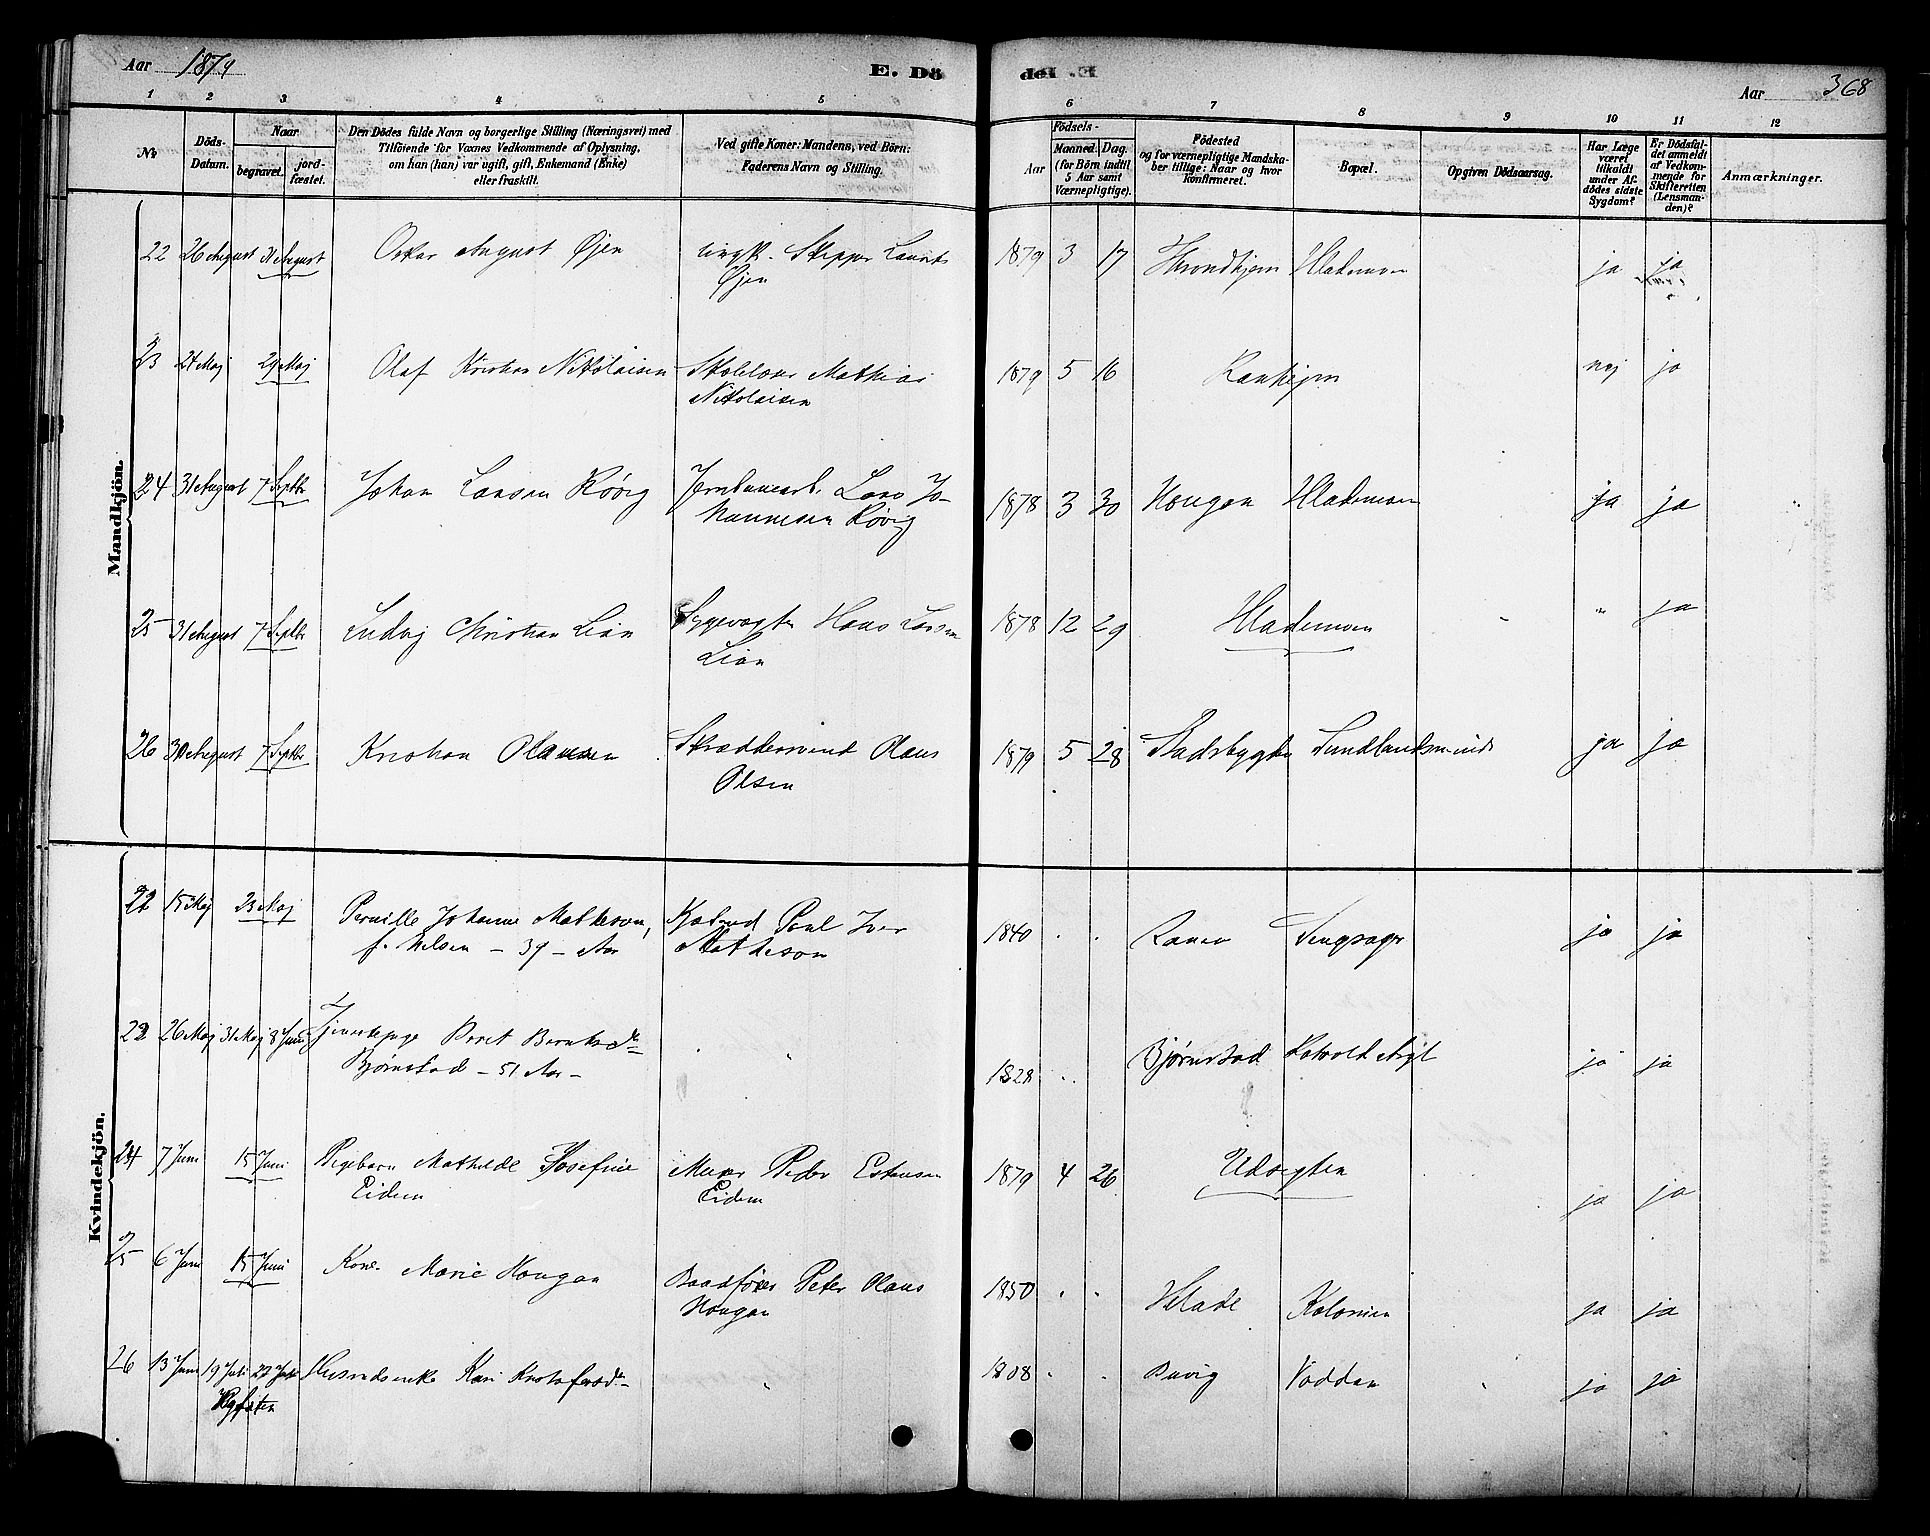 Aar 1879
E. Dö
Aar 368
1 2 3 4 5 6 7 8 9 10 11 12
№
Döds-Datum.
Naar
begravet.
jordfæstet.
Den Dödes fulde Navn og borgerlige Stilling (Næringsvei) med
Tilföiende for Voxnes Vedkommende af Oplysning,
om han (hun) var ugift, gift, Enkemand (Enke)
eller fraskilt.
Ved gifte Koner: Mandens, ved Börn:
Faderens Navn og Stilling.
Födsels-
Aar
Maaned. Dag.
(for Börn indtil
5 Aar samt
Værnepligtige).
Födested
og for værnepligtige Mandska-
ber tillige: Naar og hvor
konfirmeret.
Bopæl.
Opgiven Dödsaarsag.
Har Læge
været
tilkaldt
under Af-
dödes sidste
Sygdom?
Er Dödsfal-
det anmeldt
af Vedkom-
mende for
Skifteretten
(Lensman-
den)?
Anmærkninger.
Mandkjön.
22 26 August 31 August Oskar August Øjen ungk. Skipper Laurits 1879 3 17 Throndhjem Hlademoen ja ja
Øjen
23 24 Maj 29 Maj Olaf Kristian Nikolaisen Skolelærer Mathias 1879 5 16 Ranheim nej ja
Nikolaisen
24 31 August 7 Septbr Johan Larsen Røvig Jernbanearb. Lars Jo- 1878 3 30 Hougen Hlademoen ja ja
hannesen Røvig
25 31 August 7 Septbr Ludvig Christian Lian Hans Larsen 1878 12 29 Hlademoen " ja
Lian
26 30 August 7 Septbr Kristian Olausen Skræddersvend Olaus 1879 5 28 Stadsbygden Sundlandsminde ja ja
Olsen
Kvindekjön.
22 15 Maj 23 Maj Pernille Johanne Matheson, Paul Iver 1840 . . Ranen ja ja
f. Nelsen - 39 - Aar Matheson
23 26 Maj 31 Maj 8 Juni Tjenestepige Beret Berntsdr 1828 . . Bjørnstad Rotvold Asyl ja ja
Bjørnstad - 51 Aar -
24 7 Juni 15 Juni Pigebarn Mathilde Josefine Murer Peder Estensen 1879 4 26 Udsigten ja ja
Eidem Eidem
25 6 Juni 15 Juni Kone Marie Hougan Baadfører Peter Olaus 1850 . . Hlade Kolonien ja ja
Hougan
26 13 Juni 19 Juli 27 Juli Husmandsenke Kari Kristofersdr " 1808 . . Buvig Vodden ja ja